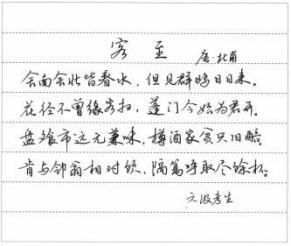 客至
唐·杜甫
舍南舍北皆春水，但见群鸥日日来。
花径不曾缘客扫，蓬门今始为君开。
盘飧市远无兼味，樽酒家贫只旧醅
肯与邻翁相对饮，隔篱呼取尽馀杯。